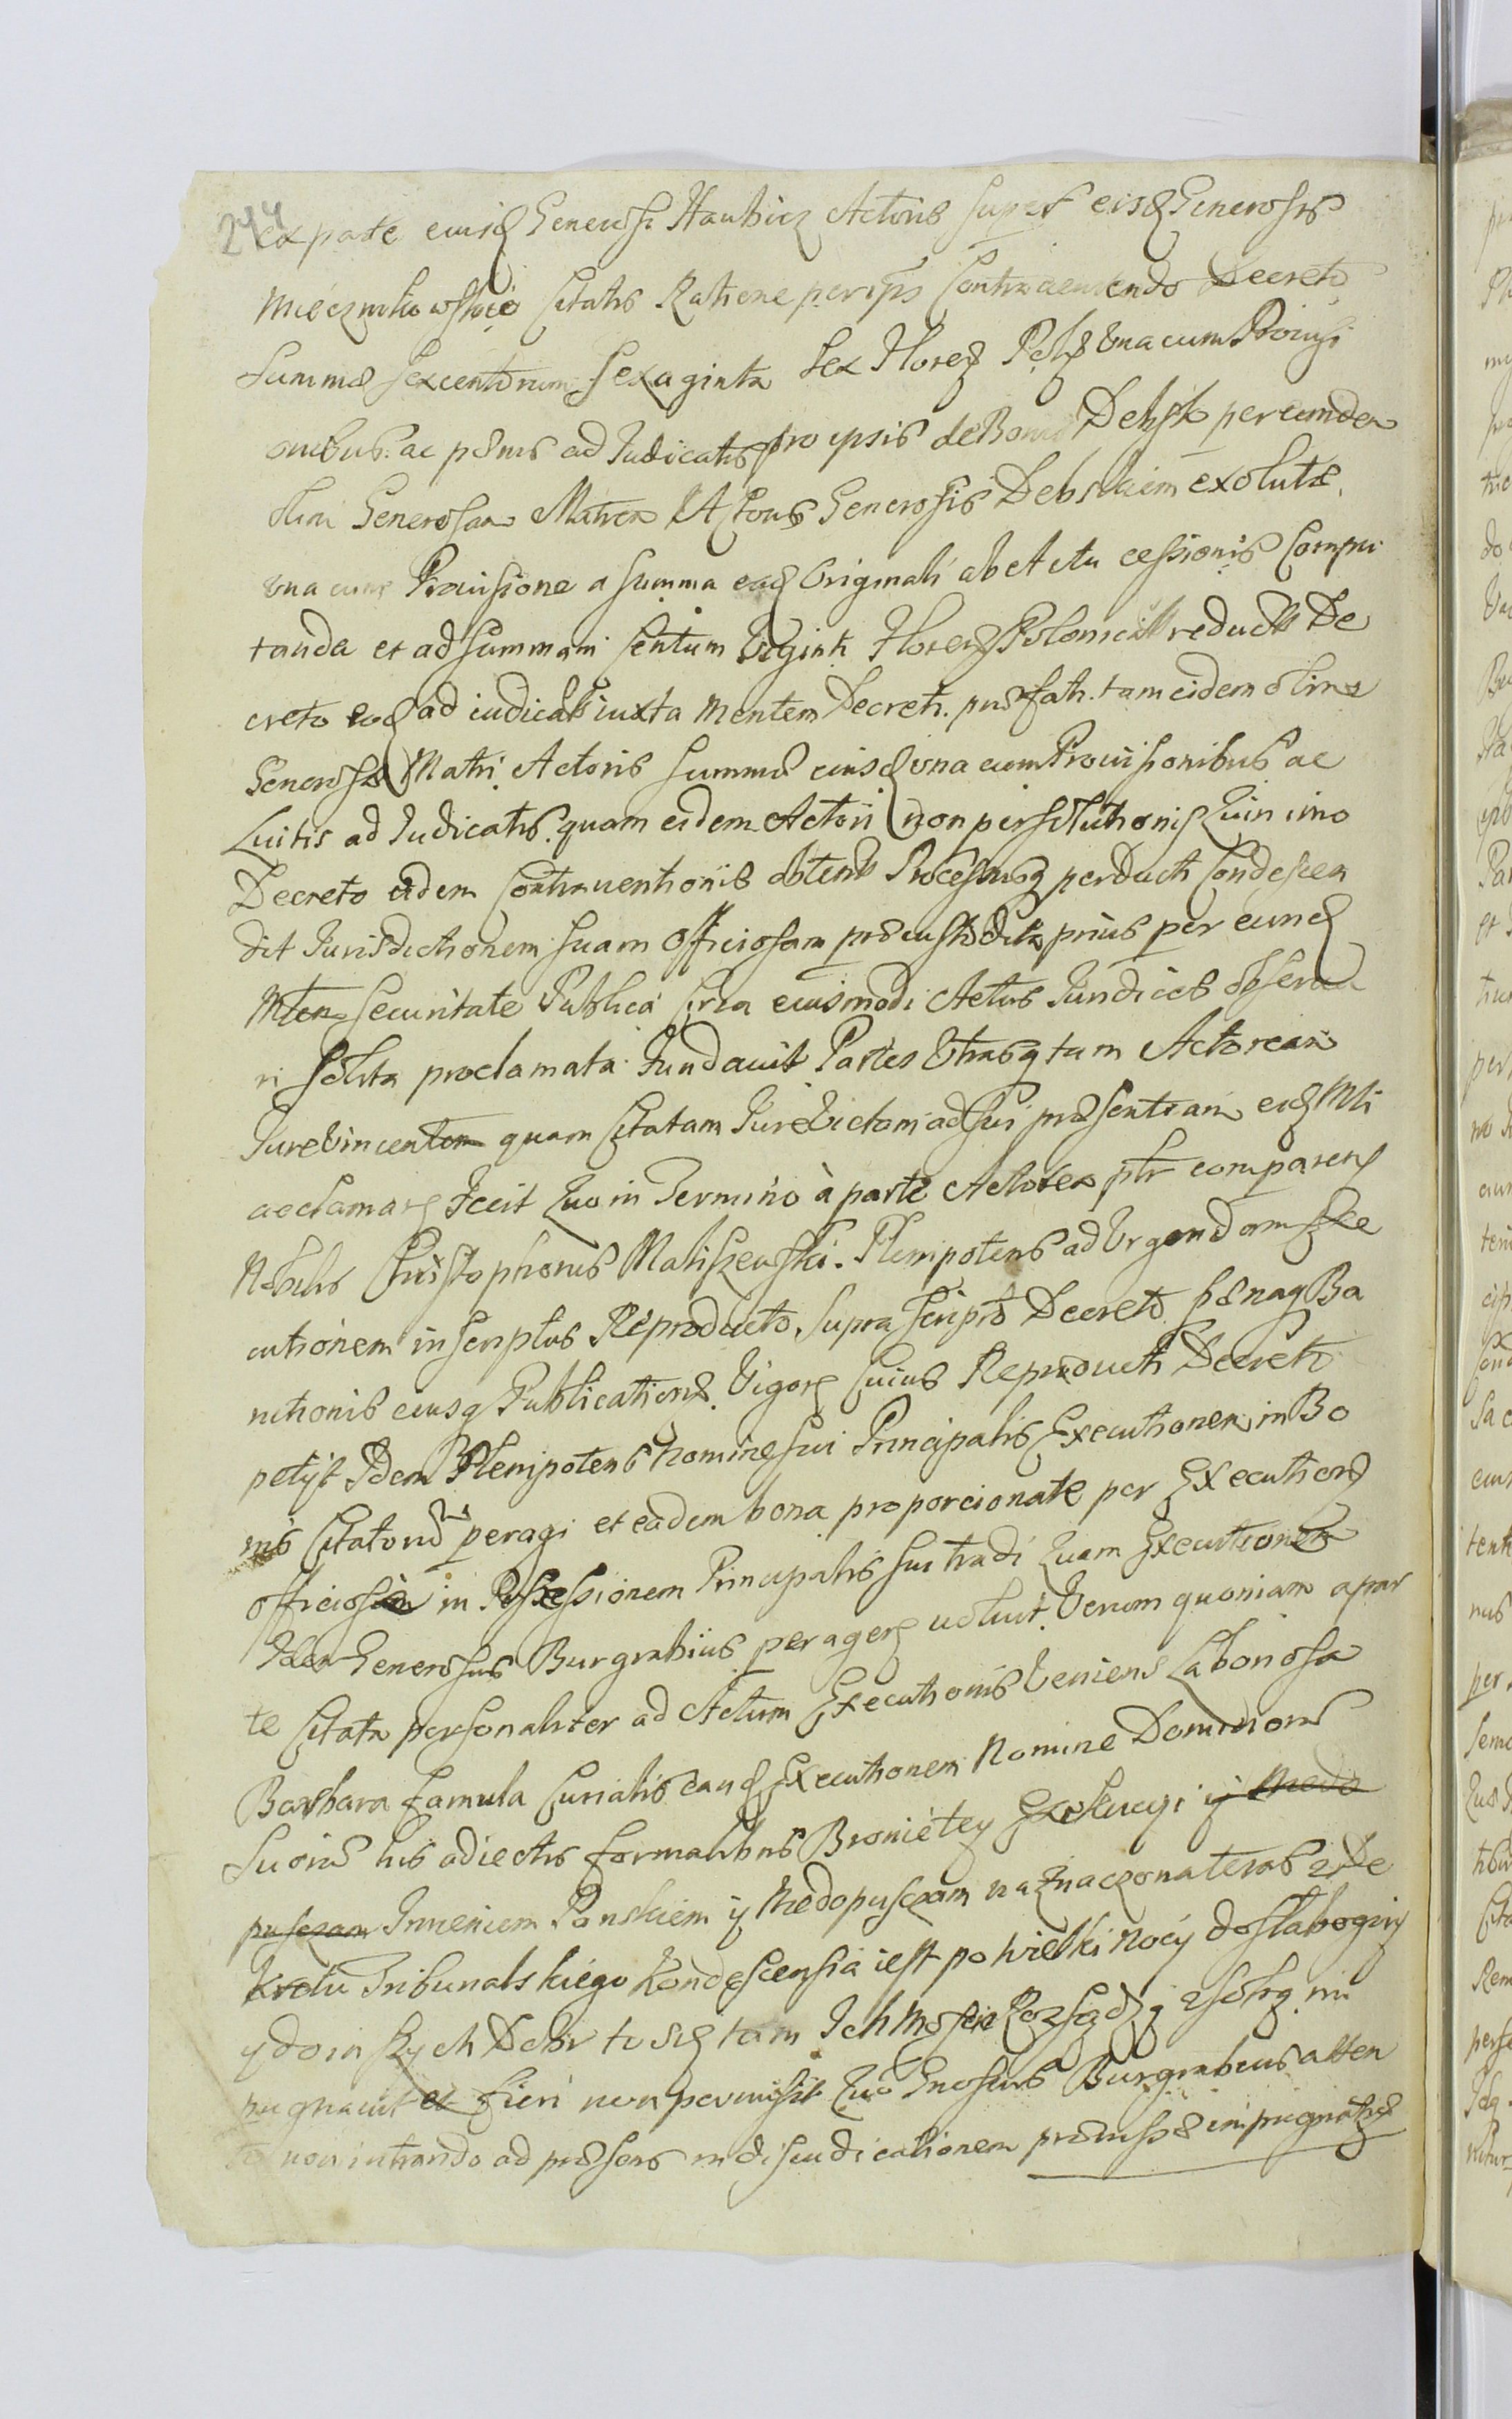 244
ex parte eiusq Generosi Haubicz Actoris super eisq Generosis
Miecznikowskie Citatis Ratione per ips Contraveniendo Decreto
Summæ sexcentorum sexaginta sex Floreq Polq una cum Provisi
onibus ac pænis ad Iudicatis pro ipsis de Bonis Debsko per eandem
olim Generosam Matrem Actoris Generosis Debskiem exolutæ
una cum Provisione a summa eaq Originali ab Actu cessionis Compu
tanda et ad summam Centum Viginti Floreq Polonical reducta De
creto eoq ad iudicatis iuxta mentem Decreti præfati tam eidem olim
Generosæ Matri Actoris summæ eiusq una cum Provisionibus ac
Luitis ad Iudicatis quam eidem Actori non persolutioniq Quin imo
Decreto eidem Contraventionis obtento Processusq perducti Condescen
dit Iurisdictionem suam officiosam præcustodita prius per eunq
Mtem securitate Publica circa eiusmodi Actus Iuridicos observa
ri solita proclamata fundavit Partes Utrasq tam Actoream
Iurevincentem quam Citatam Iurevictam ad sui præsentiam eiq Mti
acclamare fecit Quo in Termino à parte Actorea ptr comparens
Nobilis Christophorus Maliszewski Plenipotens ad Urgendam Exe
cutionem inscriptus Reproducto suprascripto Decreto pænaq Ba
nitionis eiusq Publicatione Vigore Cuius Reproducti Decreti
petyt Idem Plenipotens nomine sui Principalis Executionem in Bo
nis Citatorũ peragi et eadem bona proporcionate per Executionẽ
officiosam in Possessionem Principalis sui tradi Quam Executionem
Idem Generosus Burgrabius peragere voluit Verum quoniam a par
te Citata personaliter ad Actum Executionis Veniens Laboriosa
Barbara famula Curialis eanq Executionem Nomine Dominorũ
Suorũ his adiectis formalibus Bronię tey Exekucyi y Niedo
puszczam Imieniem Panskiem y Niedopuszczam naznaczona teras z De
kretu Tribunalskiego Kondescensia iest po Wielki nocy do slaboginy
y do inszych Debr to się tam Ich Mosćie Rozsądzą z sobą im
pugnavit et fieri non permisit Quo Gnosus Burgrabius atten
to non intrando ad præsens in diiudicationem præmissæ impugnatiẽ